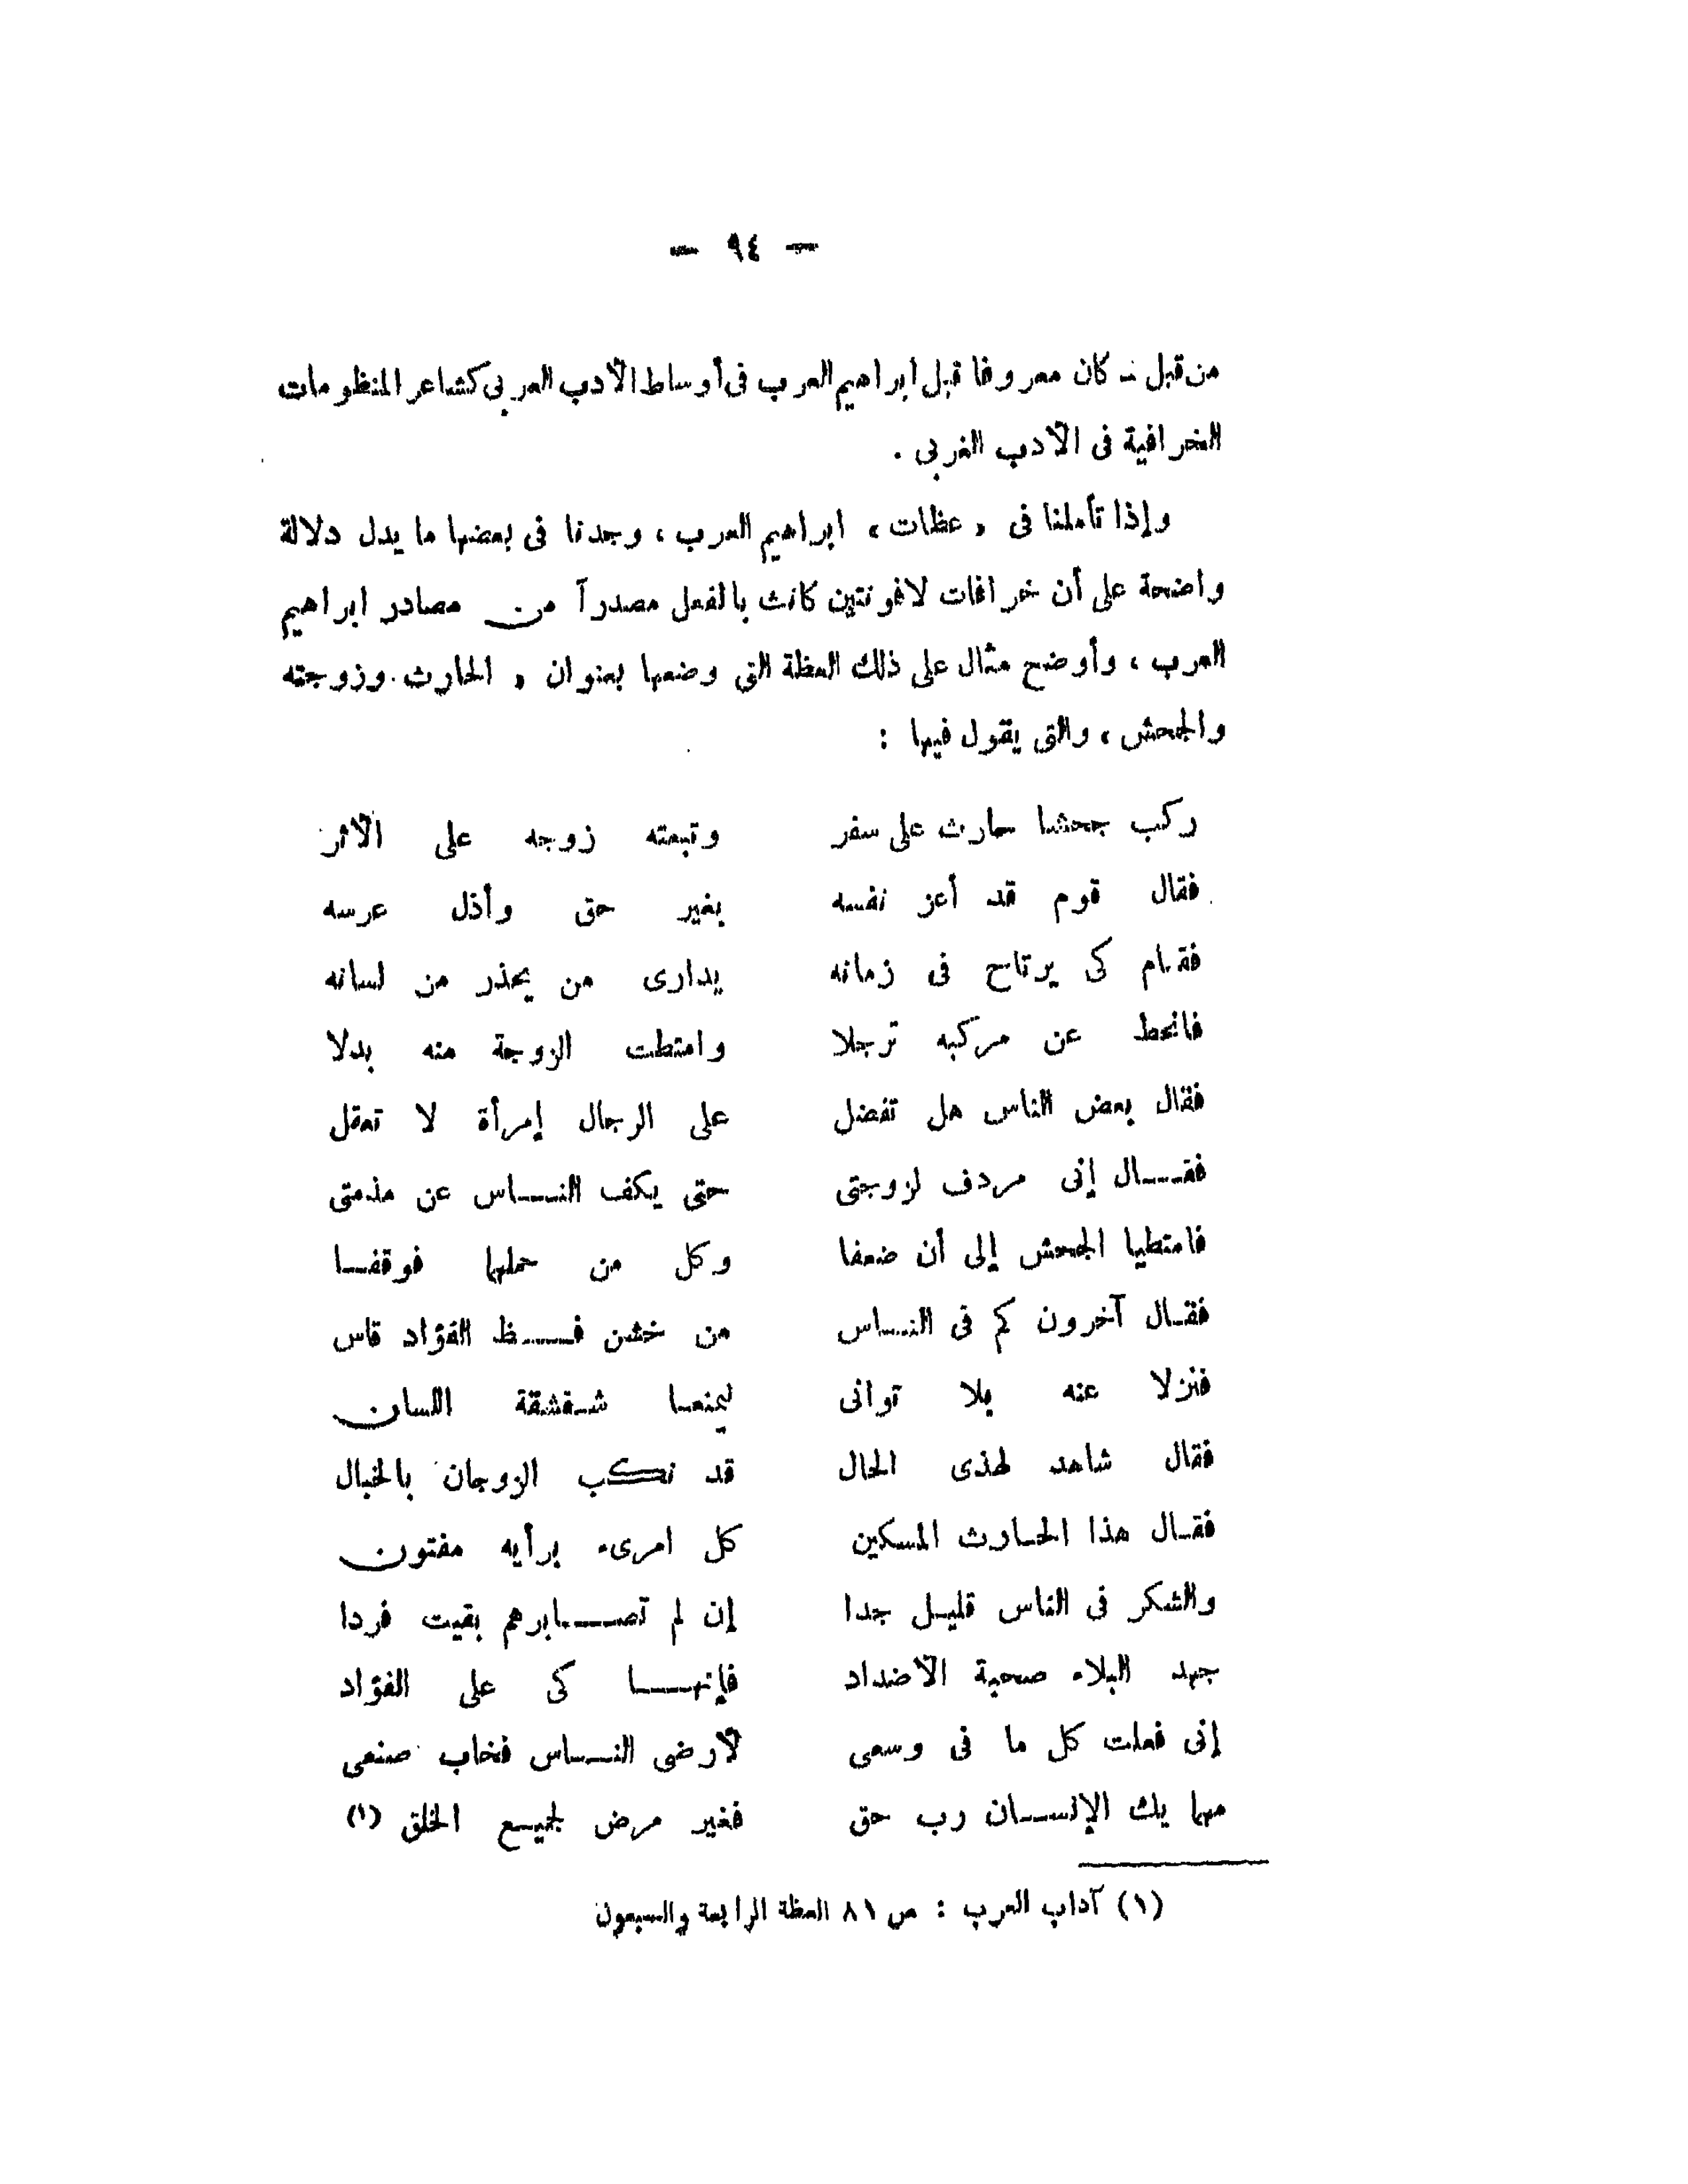 — ٩٤ —
من قبل — كان معروفا قبل ابراهيم العرب فى أوساط الأدب العربى كشاعر المنظومات
الخرافية فى الأدب الغربى .
وإذا تأملنا فى « عظات » ابراهيم العرب ، وجدنا فى بعضها ما يدل دلالة
واضحة على أن خرافات لافونتين كانت بالفعل مصدرآ من مصادر ابراهيم
العرب ، وأوضح مثال على ذلك العظة التى وضعها بعنوان « الحارث وزوجته
والجحش » والتى يقول فيها :
ركب جحشا حارث على سفر وتبعته زوجه على الأثر
فقال قوم قد أعز نفسه بغير حق وأذل عرسه
فقام كى يرتاح فى زمانه يدارى من يحذر من لسانه
فانحط عن مركبه ترجلا وامتطت الزوجة منه بدلا
فقال بعض الناس هل تفضل على الرجال إمرأة لا تعقل
فقـــال إنى مردف لزوجتى حتى يكف النـــاس عن مذمتى
فامتطيا الجحش إلى أن ضعفا وكل من حملهما فوقفـا
فقـال آخرون كم فى النـاس من خشن فـــظ الفؤاد قاس
فنزلا عنه بلا توانى ليمنعـا شـقشقة اللسان
فقال شاهد لهذى الحال قد نكب الزوجان بالخبال
فقـال هذا الحـارث المسكين كل امرىء برأيه مفتون
والشكر فى الناس قليـل جدا إن لم تصـــابرهم بقيت فردا
جهد البلاء صحبة الأضداد فإنهـــا كى على الفؤاد
إنى فعلت كل ما فى وسعى لأرضى النـاس فخاب صنعى
مهما يك الإنســان رب حق فغير مرض لجميـع الخلق (١)
(١) آداب العرب : ص ٨١ العظة الرابعة والسبعون